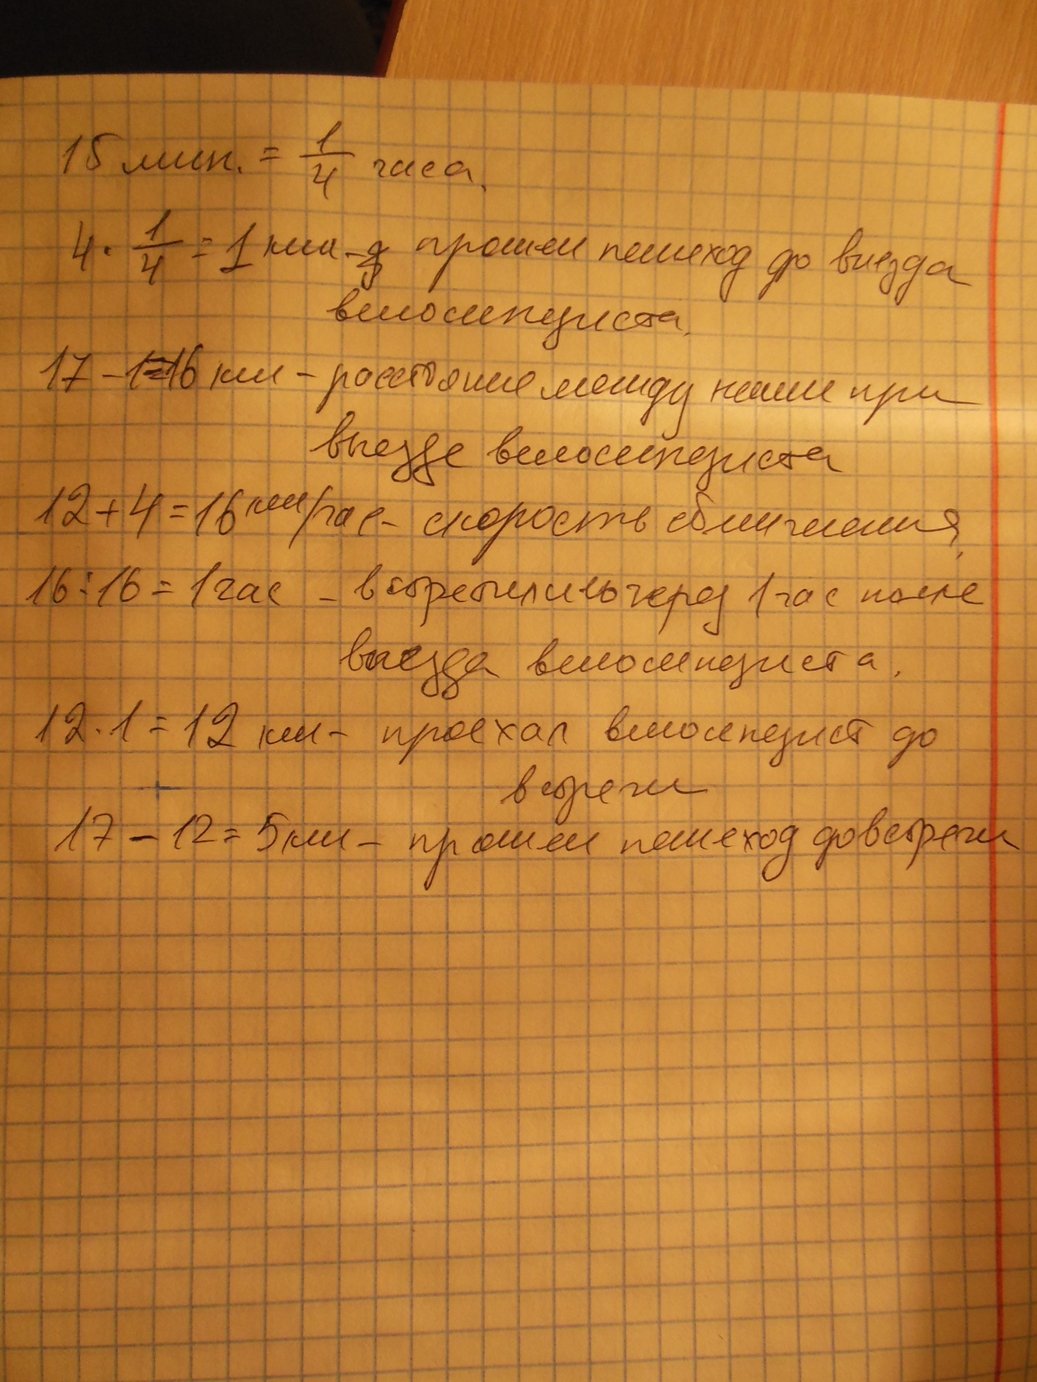 15 мин. = 1/4 часа.
4 · 1/4 = 1 км - прошел пешеход до выезда
велосипедиста.
17 - 1 = 16 км - расстояние между ними при
выезде велосипедиста
12 + 4 = 16 км/час - скорость сближения,
16 : 16 = 1 час - встретились через 1 час после
выезда велосипедиста.
12 · 1 = 12 км - проехал велосипедист до
встречи
17 - 12 = 5 км - прошел пешеход до встречи